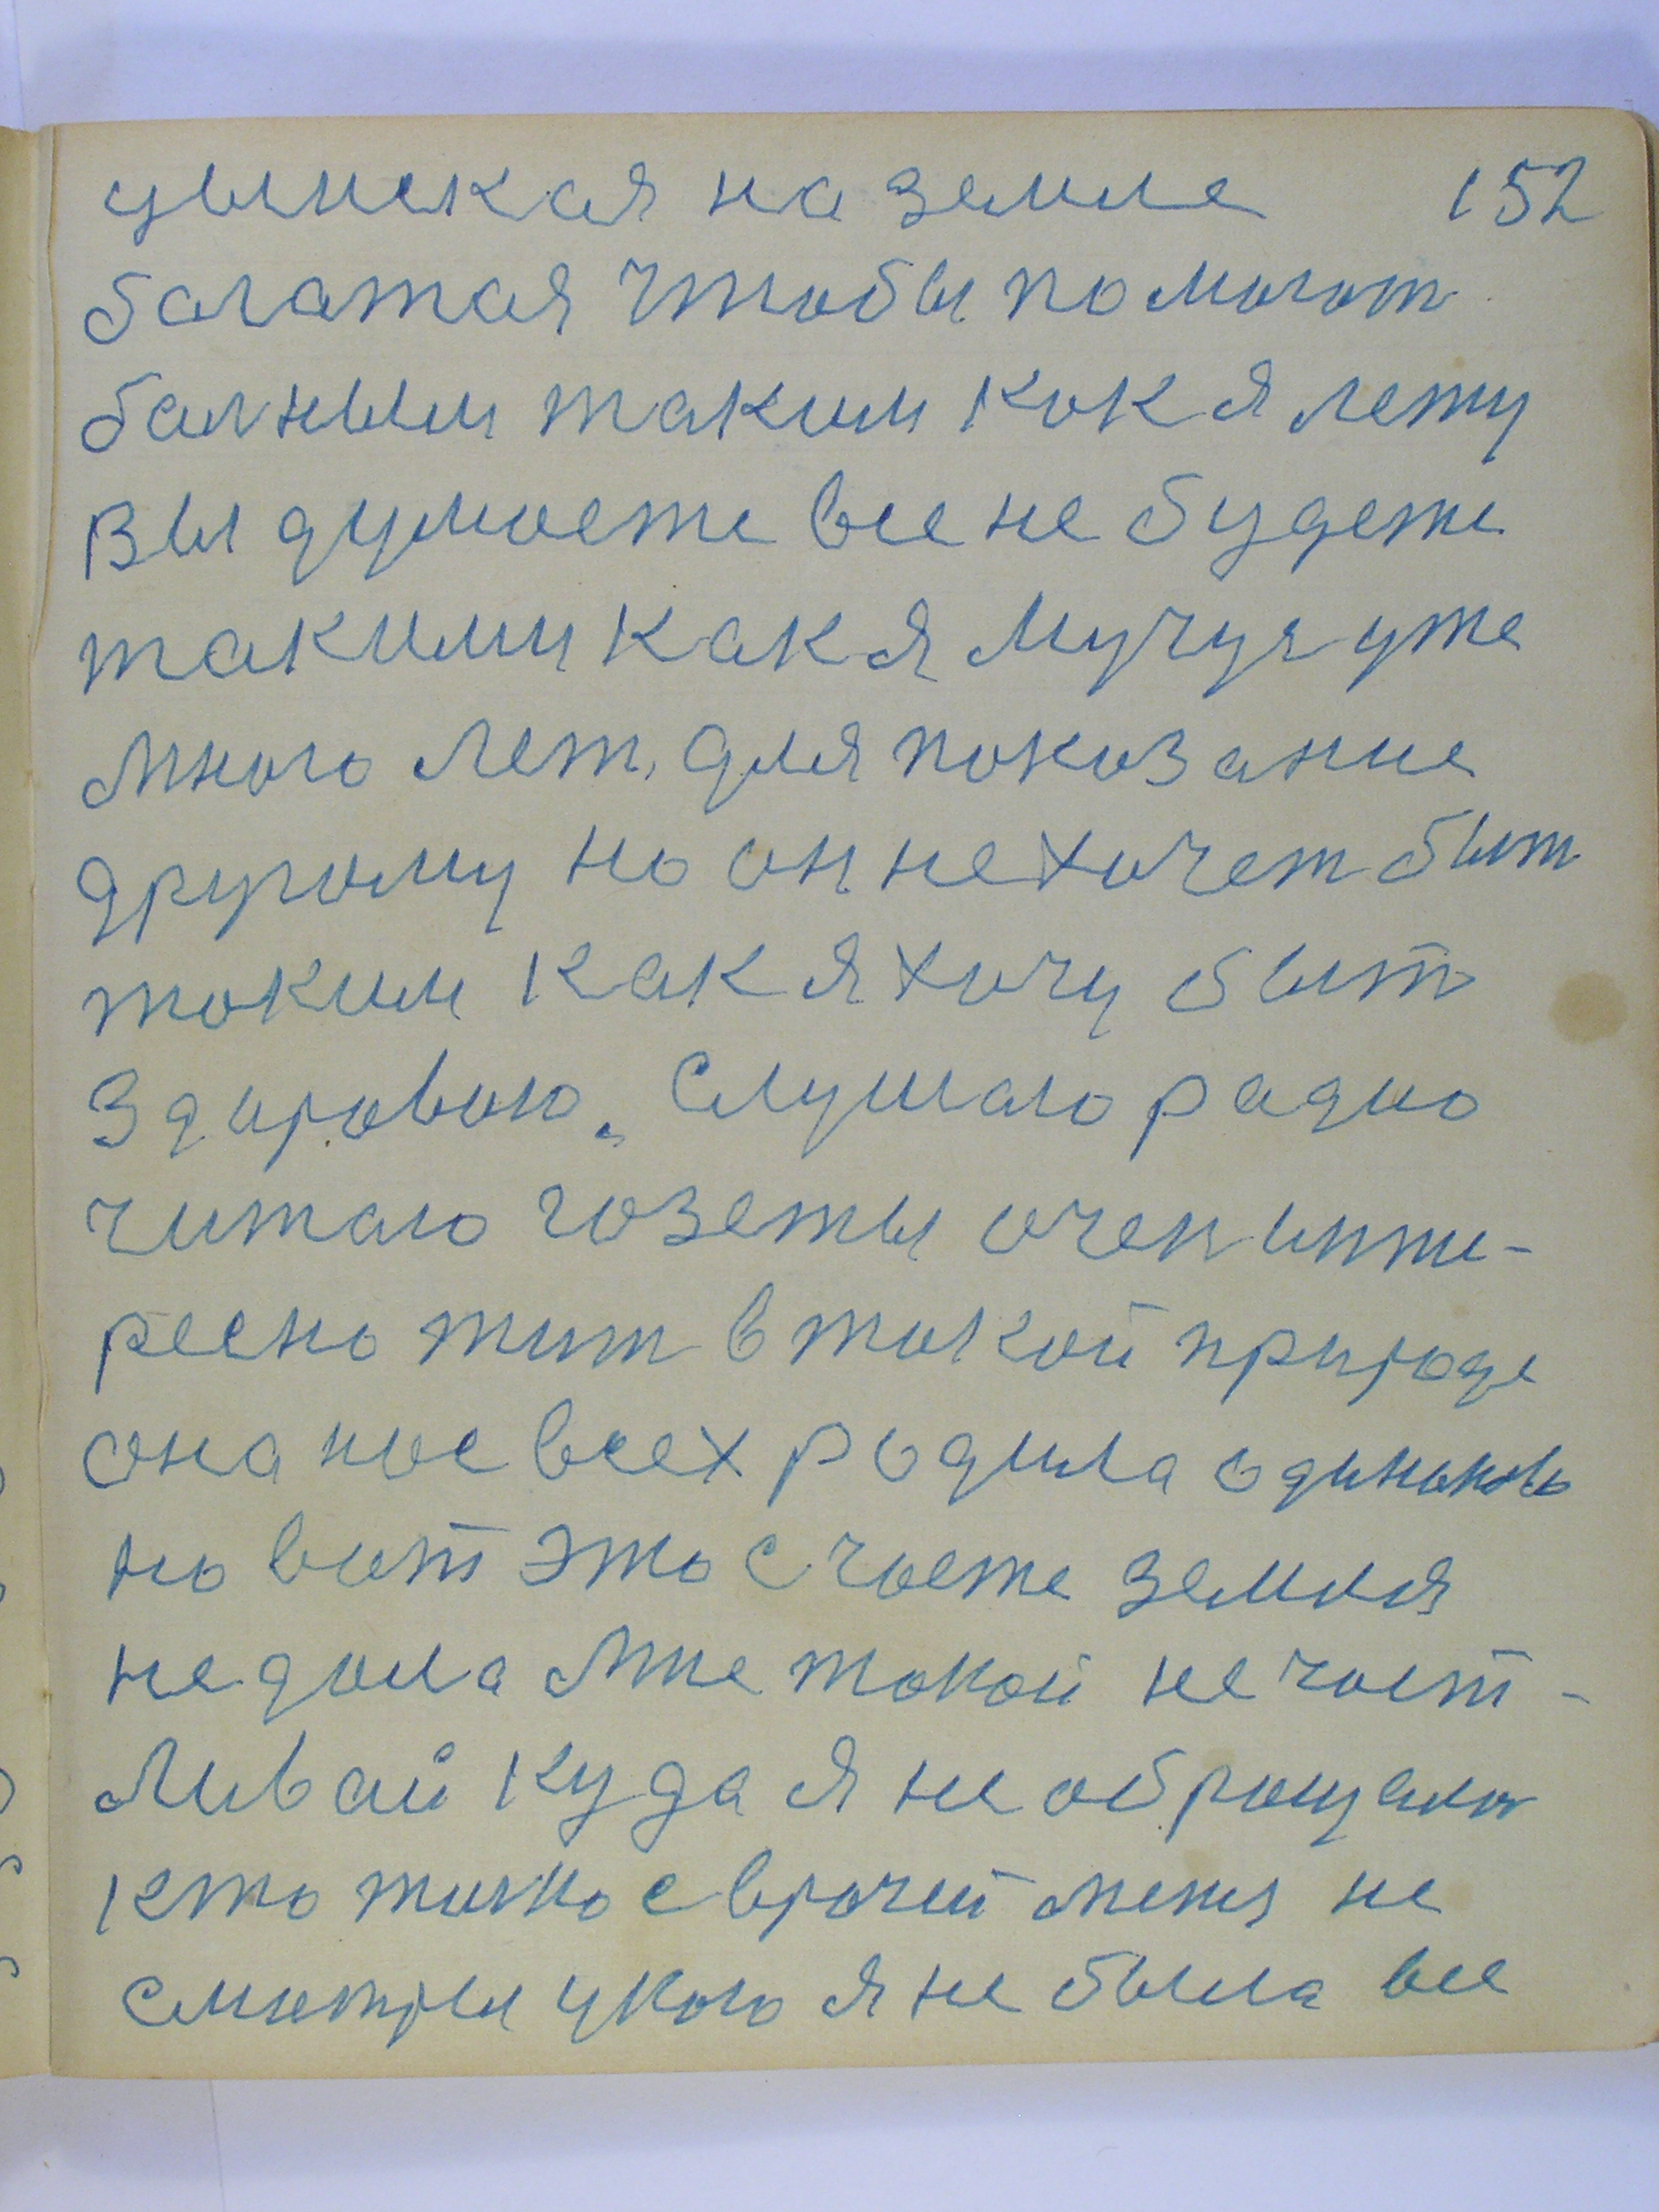 цынская на земле 152
багатая чтобы помогат
балным таким как я лежу
Вы думаете все не будете
такими как я мучуя уже
много лет, для показание
другому но он не хочет быт
таким как я хочу быт
Здоровою. Слушаю радио
читаю газеты очен инти-
ресно жит в такой природе
она нас всех родила одинаково
но вот это счасте земля
не дала мне такой нечаст-
ливай куда я не обращалас
кто толко с врачей меня не
смотрел у кого я не была все